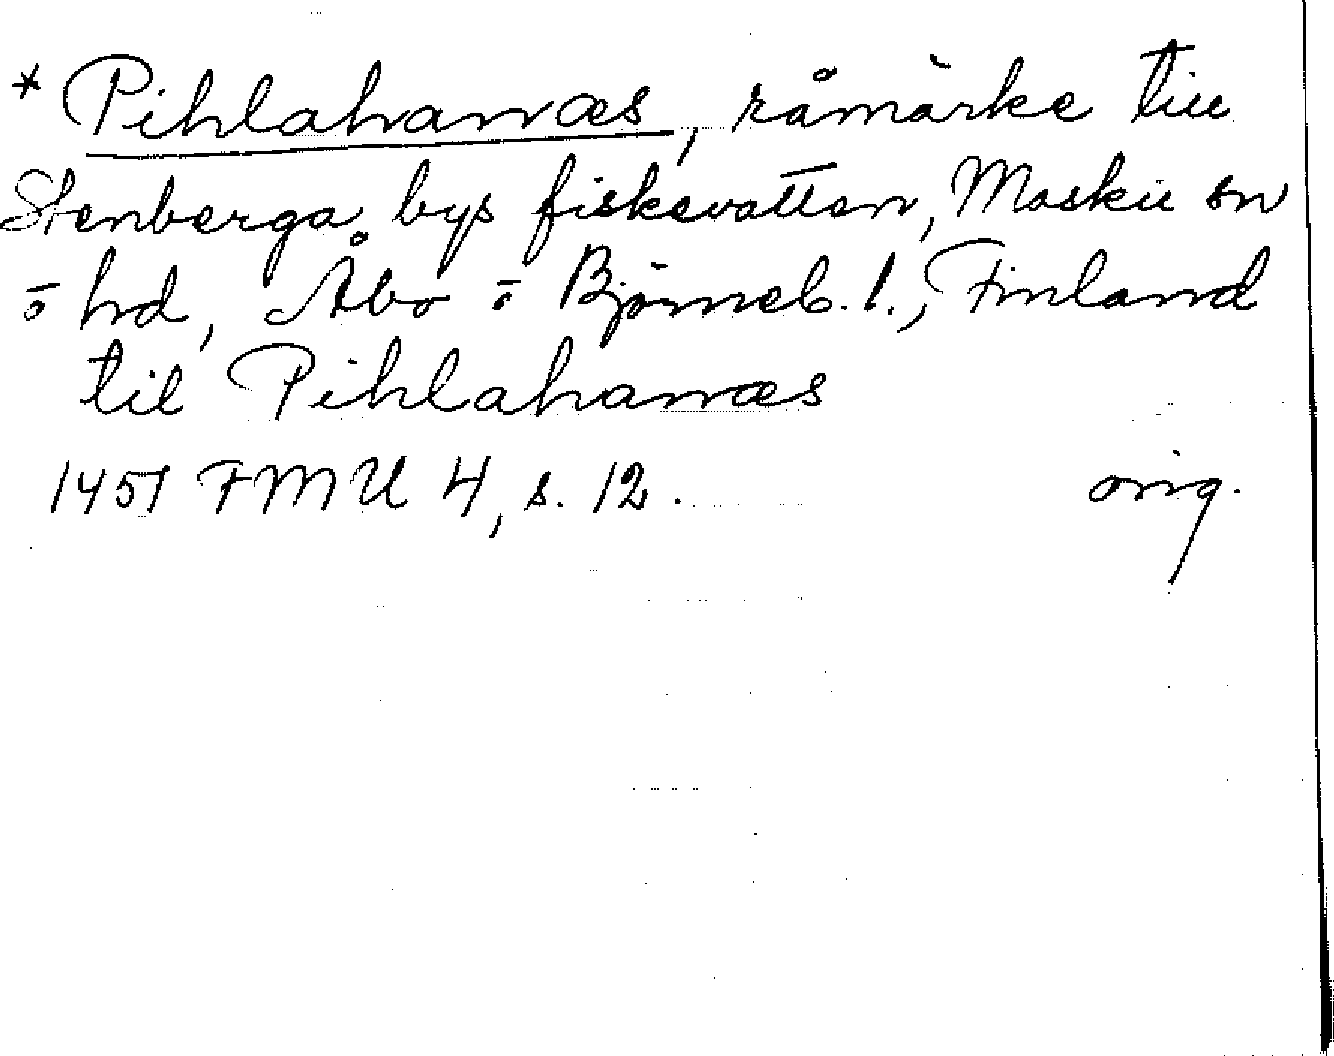 * Pihlahanæs, råmärke till
Stenberga bys fiskevatten, Masku sn
o hd, Åbo o Björneb. l., Finland
til Pihlahanæs
1451 FMU 4, s. 12. orig.